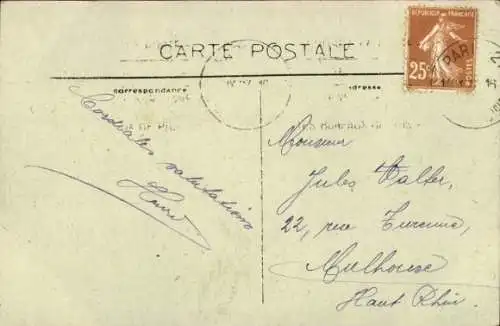 CARTE POSTALE
RÉPUBLIQUE FRANÇAISE
25c
POSTES
PAR
correspondance
adresse
Cordiales salutations
Henri
Monsieur
Jules Walter,
22, rue Turenne,
Mulhouse
Haut Rhin.